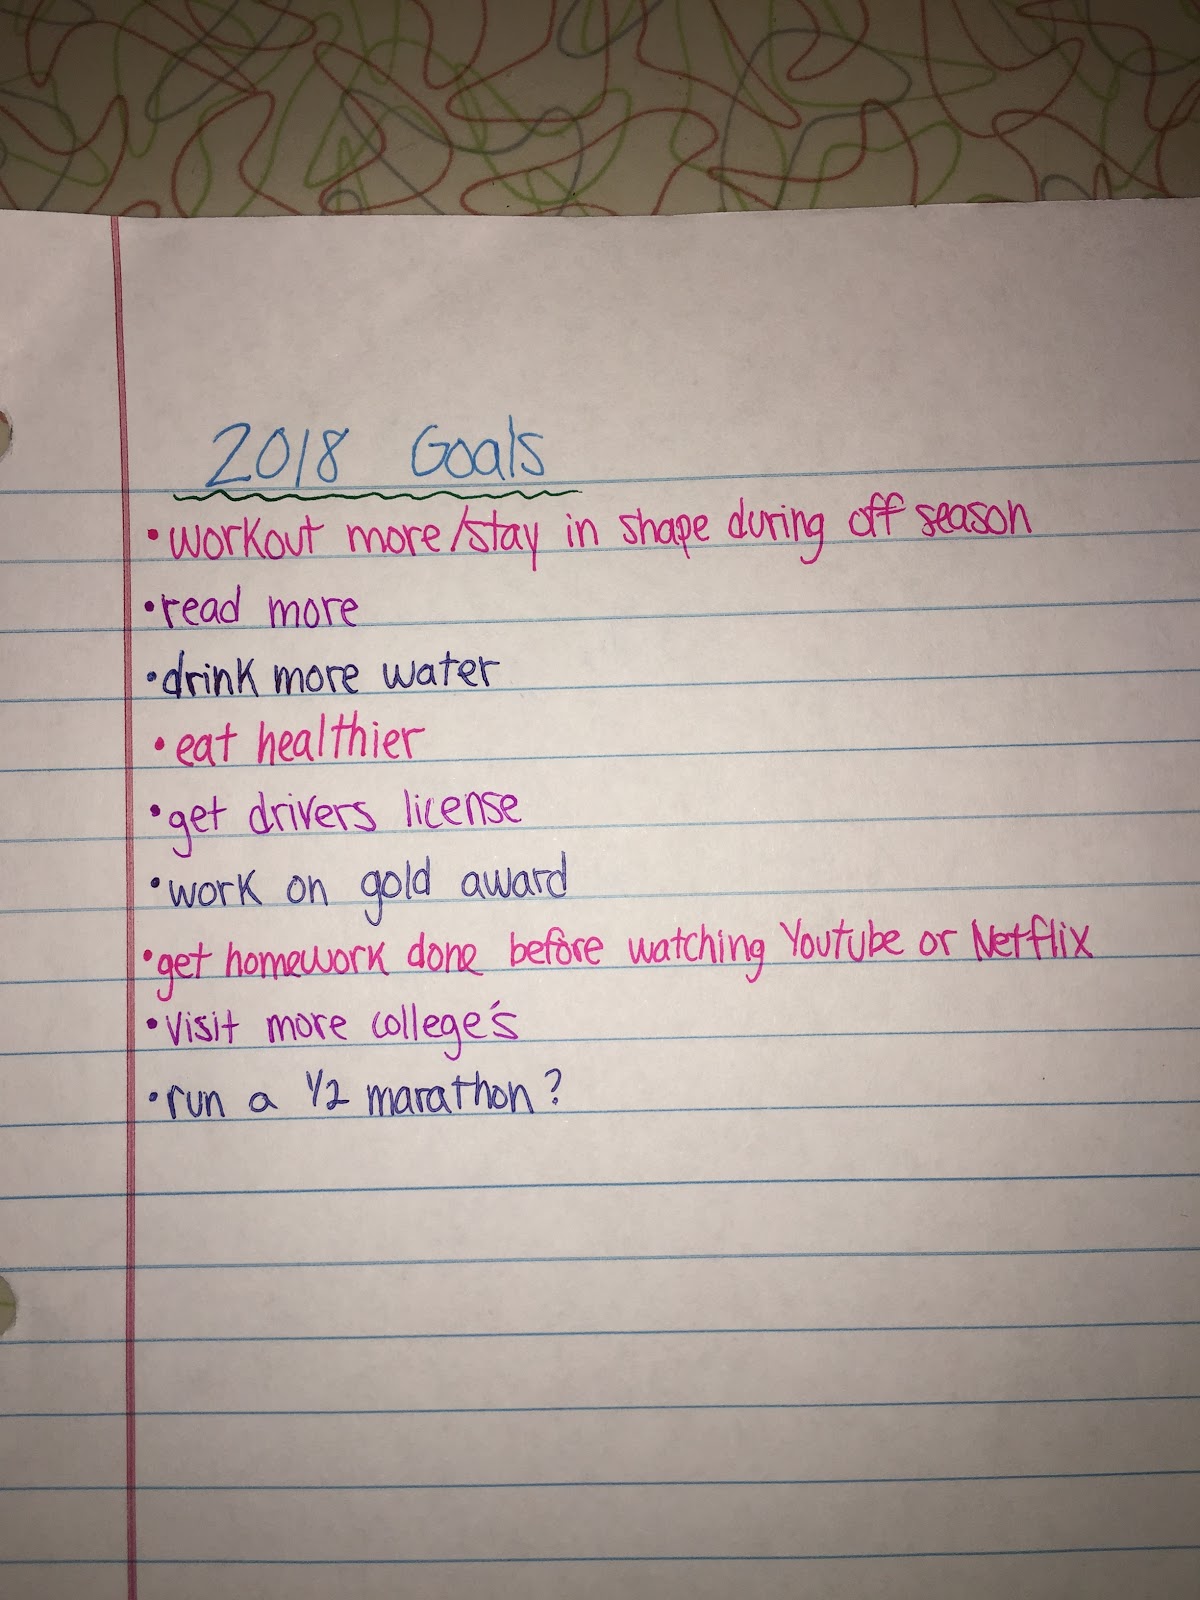 2018 Goals
•workout more/stay in shape during off season
•read more
•drink more water
•eat healthier
•get drivers license
•work on gold award
•get homework done before watching Youtube or Netflix
•Visit more college's
•run a 1/2 marathon?